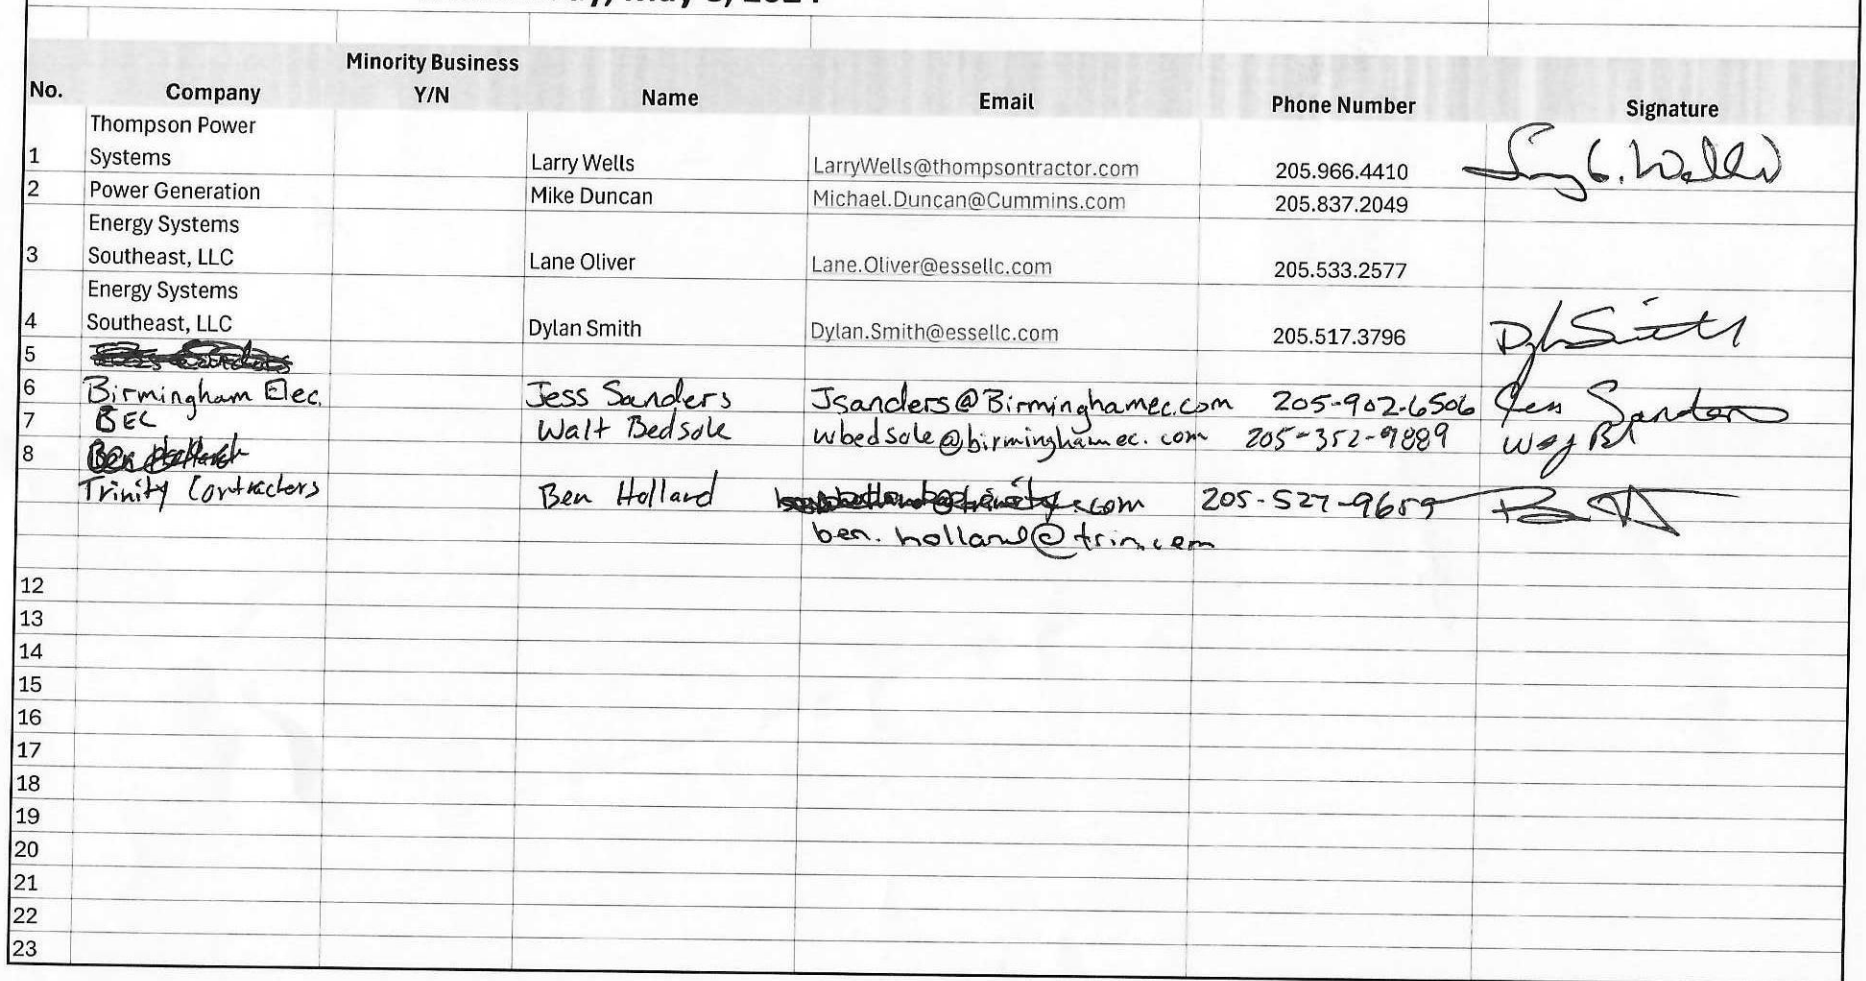 Minority Business
No. Company Y/N Name Email Phone Number Signature
Thompson Power
1 Systems Larry Wells LarryWells@thompsontractor.com 205.966.4410
2 Power Generation Mike Duncan Michael.Duncan@Cummins.com 205.837.2049
Energy Systems
3 Southeast, LLC Lane Oliver Lane.Oliver@essellc.com 205.533.2577
Energy Systems
4 Southeast, LLC Dylan Smith Dylan.Smith@essellc.com 205.517.3796 Dyl Smith
5
6 Birmingham Elec. Jess Sanders Jsanders@Birminghamec.com 205-902-6506 Jess Sanders
7 BEC Walt Bedsole wbedsole@birminghamec.com 205-352-9889
8
Trinity Contractors Ben Holland .com 205-527-9659
ben.holland@trin.com
12
13
14
15
16
17
18
19
20
21
22
23